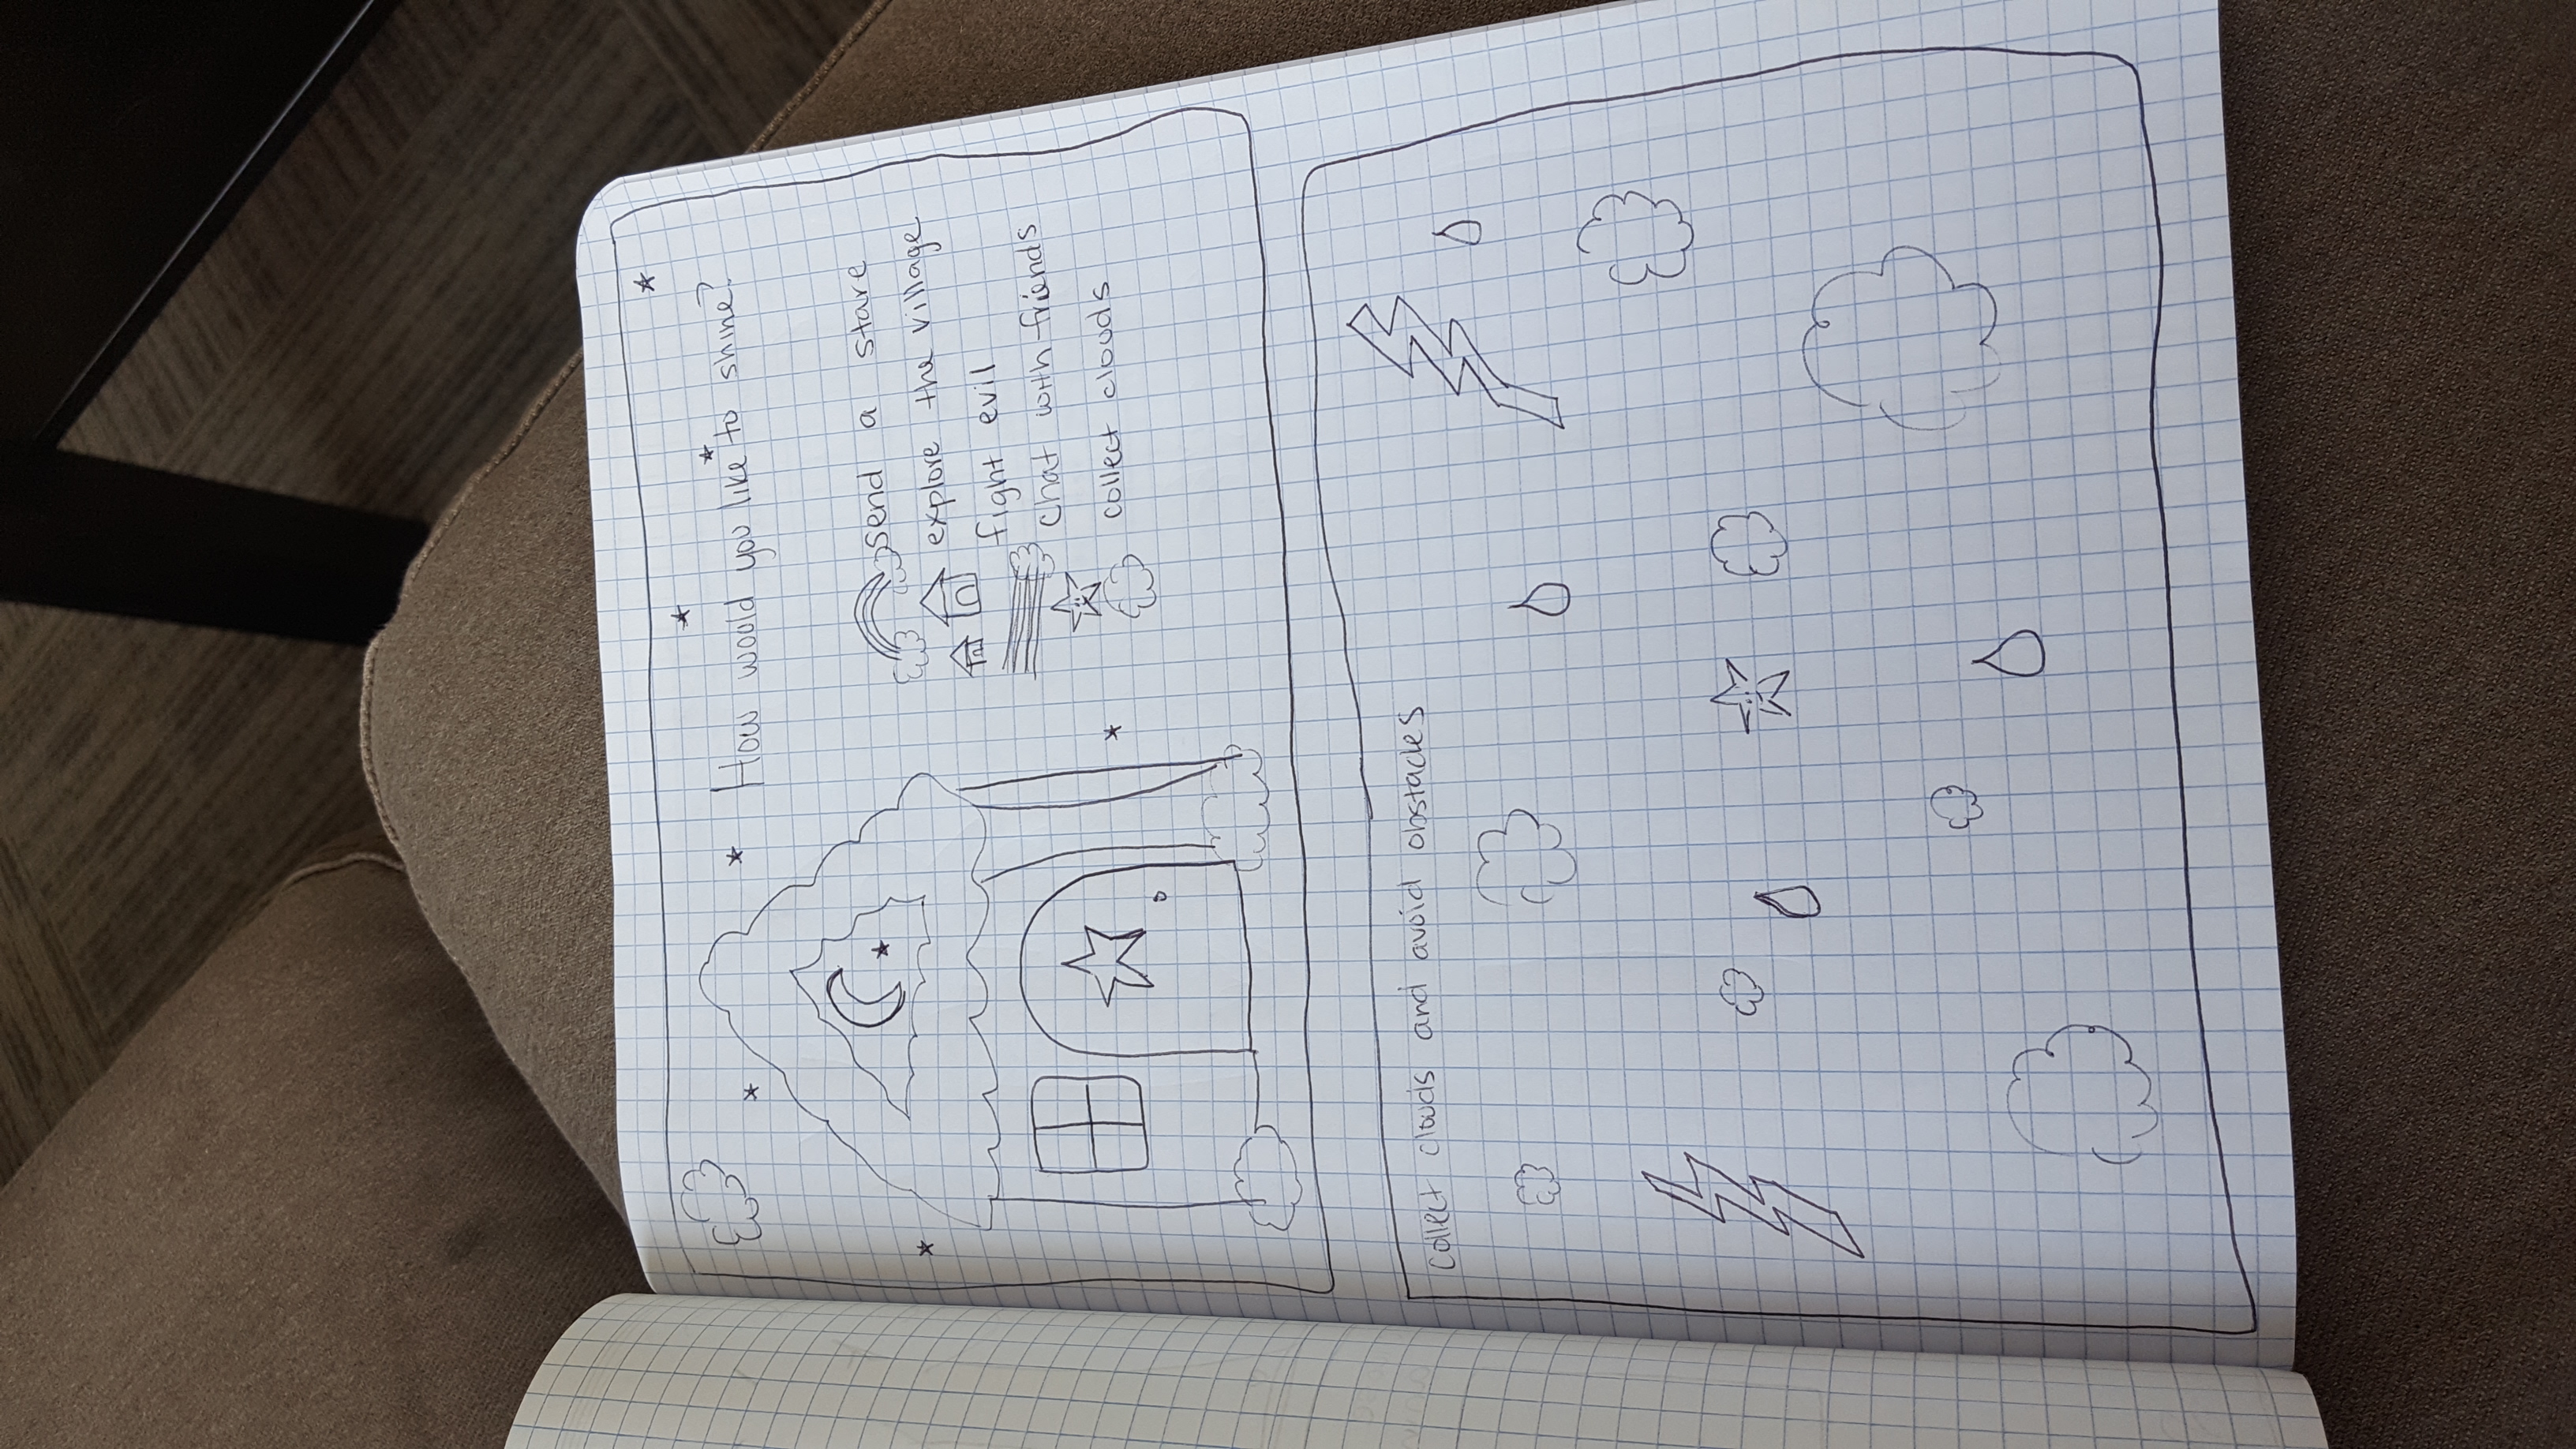 How would you like to shine?
send a stare
explore the village
fight evil
chat with friends
collect clouds
collect clouds and avoid obstacles